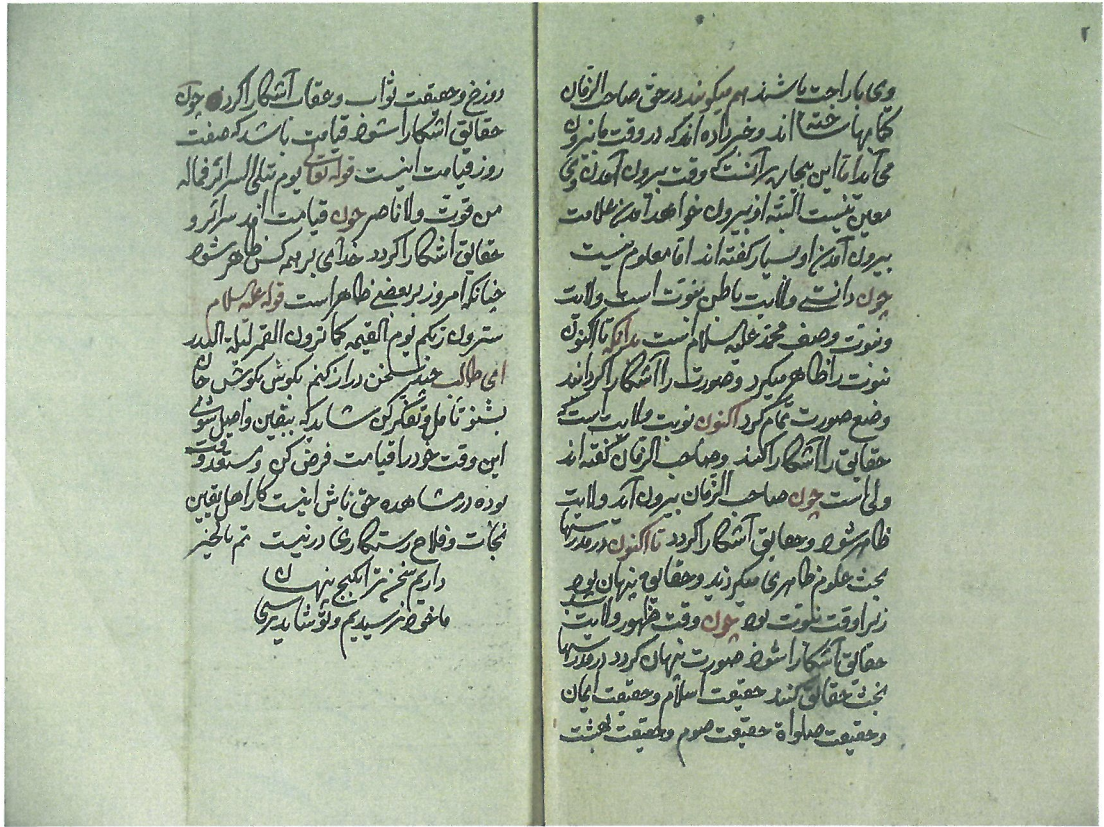 ۲
وی باراحت باشند هم میکویند در حق صاحب الزمان
کتابها ساخته اند و خبر داده اند که در وقت ما بیرون
می آید اما این بیچاره بر آنست که وقت بیرون آمدن وی
معین نیست البته او بیرون خواهد آمدن علامت
بیرون آمدن او بسیار کفته اند اما معلوم نیست
چون دانستی ولایت باطن نبوت است ولایت
و نبوت وصف محمد علیه السلام است بدانکه تا اکنون
نبوت را ظاهر میکرد و صورت را آشکارا کردانند
وضع صورت تمام کرد اکنون نوبت ولایت است که
حقایق را آشکارا کند و صاحب الزمان کفته اند
ولی است چون صاحب الزمان بیرون آید ولایت
ظاهر شود و حقایق آشکارا کردد تا اکنون در مدرسها
بحث علوم ظاهری میکردند و حقایق پنهان بود
زیرا وقت نبوت بود چون وقت ظهور ولایت
حقایق آشکارا شود صورت پنهان کردد در مدرسها
بحث حقایق کنند حقیقت اسلام و حقیقت ایمان
و حقیقت صلواة حقیقت صوم و حقیقت بهشت
دوزخ و حقیقت ثواب و عقاب آشکارا کردد چون
حقایق اشکارا شود قیامت باشد که صفت
روز قیامت اینست قوله تعالی یوم تبلی السرائر فماله
من قوت ولا ناصر چون قیامت آمد سرائر و
حقایق اشکارا کردد خدای بر همه کس ظاهر شود
چنانکه امروز بر بعضی ظاهر است قوله علیه السلام
سترون ربکم یوم القیمه کما ترون القمر لیلة البدر
ای طالب چند سخن دراز کنم بکوش بکوش جان
بشنو تامل و تفکر کن شاید که بیقین واصل شوی
این وقت خود را قیامت فرض کن و مستعد وقت
بوده در مشاهده حق باش اینست کار اهل یقین
نجات و فلاح رستکاری درنیست تم بالخیر
دادیم نشان
ما خود نرسیدیم و تو شاید برسی